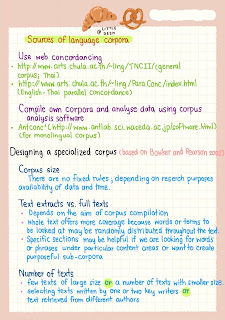 A LITTLE
DEEM
Sources of language corpora
Use web concordancing
• http://www.arts.chula.ac.th/~ling/TNCII/(general
corpus; Thai)
• http://www.arts.chula.ac.th/~ling/ParaConc/index.html
(English-Thai parallel concordance)
Compile own corpora and analyse data using corpus
analysis software
• Antconc'(http://www.antlab.sci.waseda.ac.jp/software.html)
(for monolingual corpus)
Designing a specialized corpus (based on Bowker and Pearson 2002)
Corpus size
There are no fixed rules, depending on reserch purposes
availability of data and time.
Text extracts vs. full texts
• Depends on the aim of corpus compilation
• Whole text offers more coverage because words or terms to
be looked at may be randomly distributed throughout the text.
• Specific sections may be helpful if we are looking for words
or phrases under particular content areas or want to create
purposeful sub-corpora
Number of texts
• Few texts of large size or a number of texts with smaller size.
• selecting texts written by one or two key writers or
text retrieved from different authors